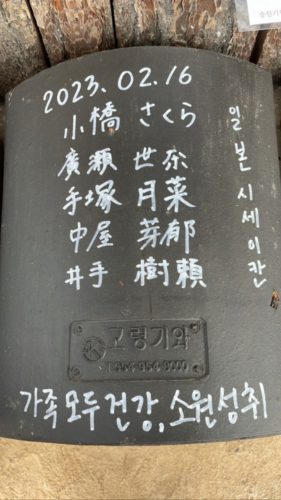 2023. 02. 16
小橋 さくら
廣瀬 世奈
手塚 月菜
中屋 芽郁
井手 樹頼
일본 시세이칸
고령기와
954-9000
가족 모두 건강, 소원성취